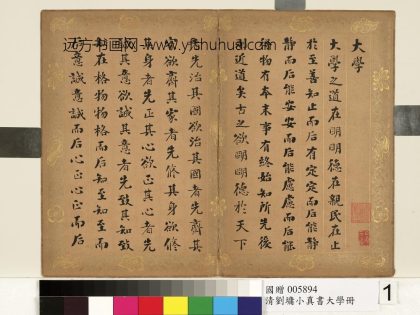 远方书画网 www.yishuhua.com
大學
大學之道在明明德在親民在止
於至善知止而后有定定而后能靜
靜而后能安安而后能慮慮而后能
得物有本末事有終始知所先後
則近道矣古之欲明明德於天下
者先治其國欲治其國者先齊其
家欲齊其家者先修其身欲修
其身者先正其心欲正其心者先
誠其意欲誠其意者先致其知致
知在格物物格而后知至知至而
后意誠意誠而后心正心正而后
國贈 005894
清劉墉小真書大學冊
1